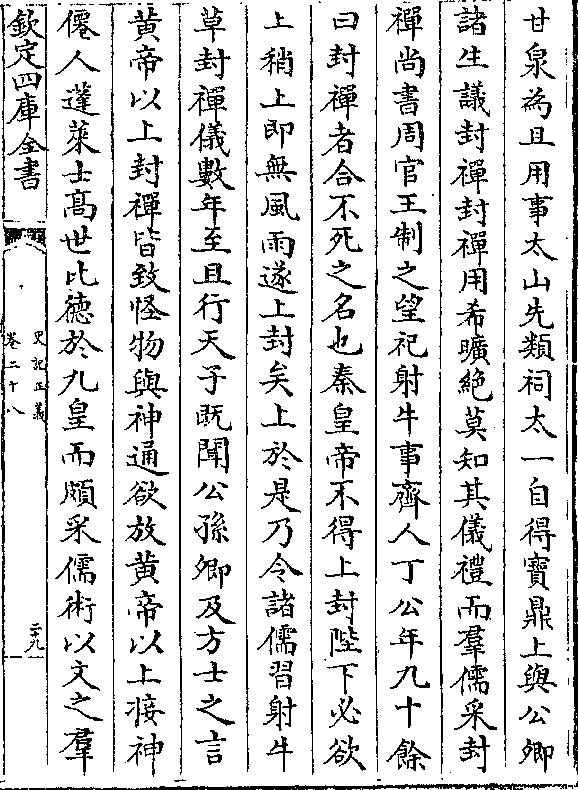 甘泉為且用事太山先類祠太一自得寶鼎上與公卿
諸生議封禪封禪用希曠絶莫知其儀禮而羣儒采封
禪尚書周官王制之望祀射牛事齊人丁公年九十餘
曰封禪者合不死之名也秦皇帝不得上封陛下必欲
上稍上即無風雨遂上封矣上於是乃令諸儒習射牛
草封禪儀數年至且行天子既聞公孫卿及方士之言
黄帝以上封禪皆致怪物與神通欲放黄帝以上接神
僊人蓬萊士髙世比德於九皇而頗采儒術以文之羣
欽定四庫全書
史記正義
卷二十八
二十九